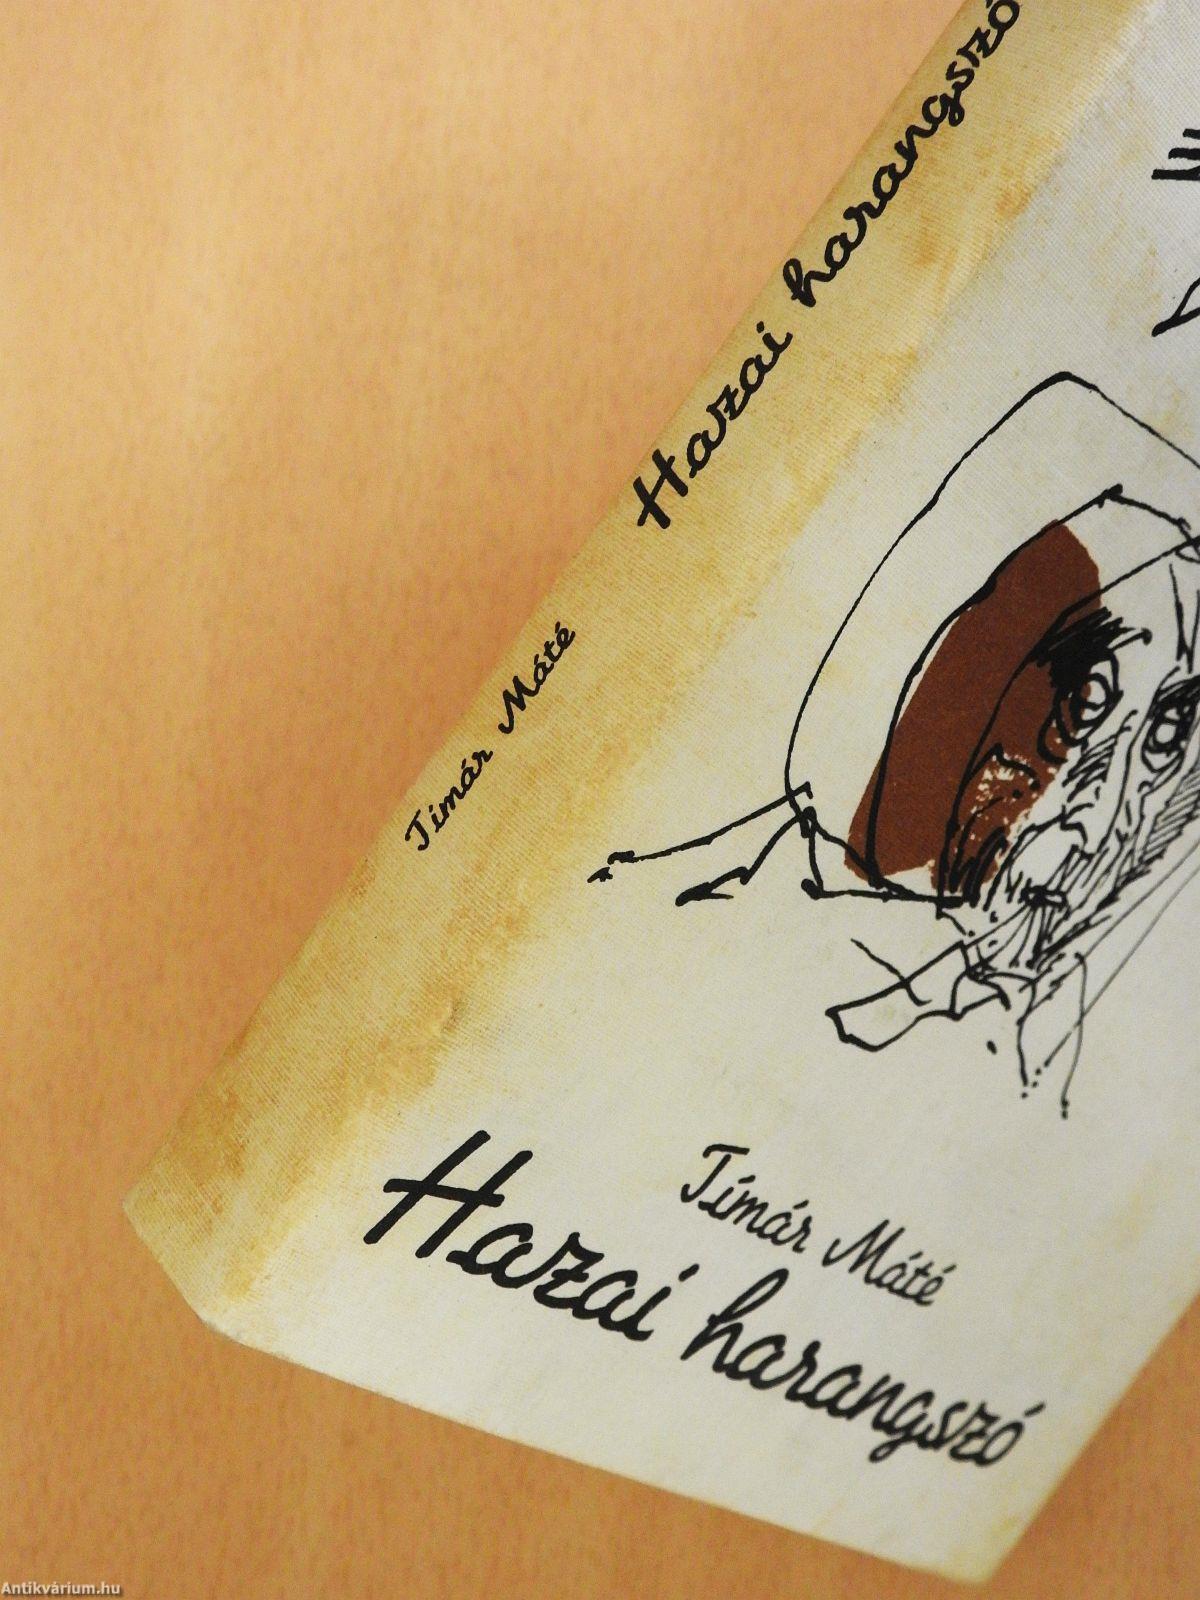 Hazai harangszó
Tímár Máté
Tímár Máté
Hazai harangszó
Antikvárium.hu